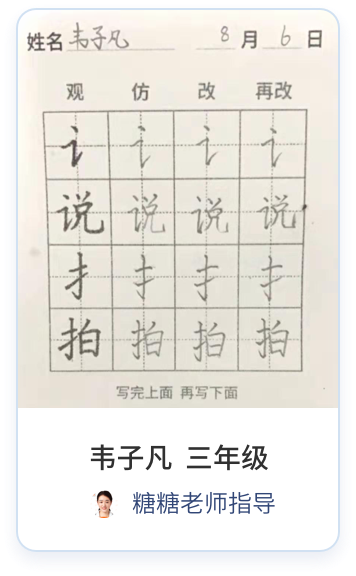 姓名 韦子凡 8 月 6 日
观 仿 改 再改
讠 讠 讠 讠
说 说 说 说
扌 扌 扌 扌
拍 拍 拍 拍
写完上面 再写下面
韦子凡 三年级
糖糖老师指导